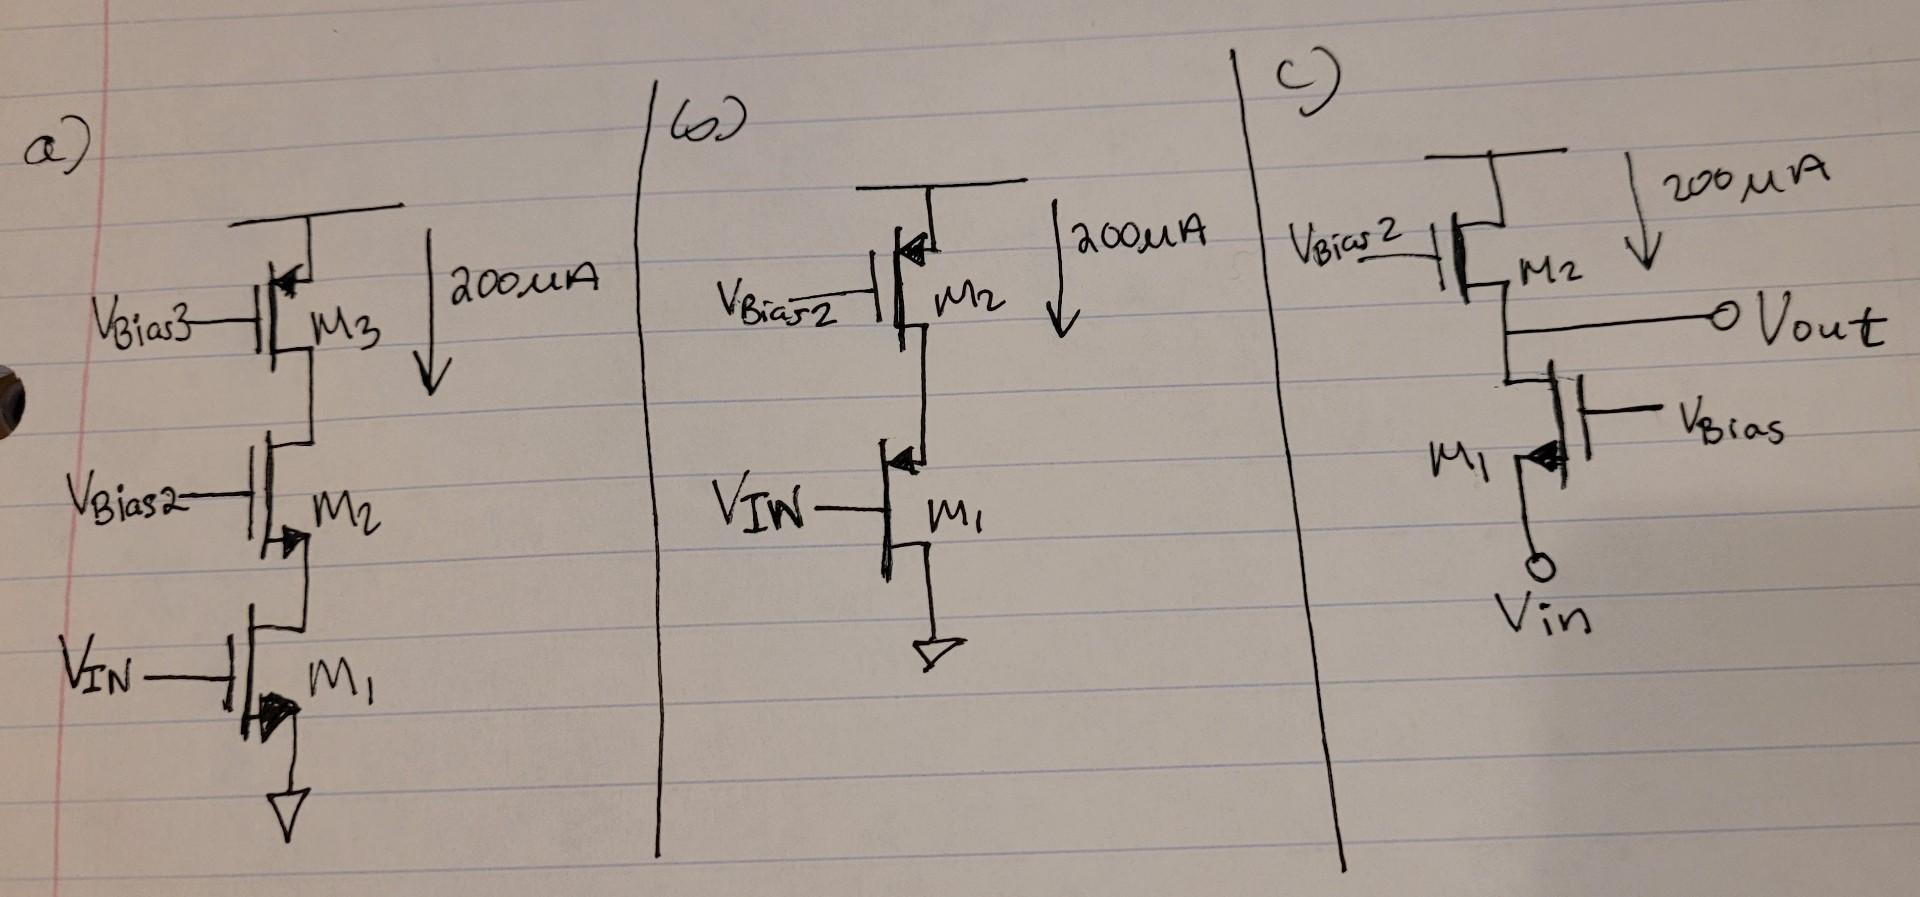 a)
200μA
VBias3
M3
VBias2
M2
VIN
M1
b)
200μA
VBias2
M2
VIN
M1
c)
200μA
VBias2
M2
Vout
VBias
M1
Vin